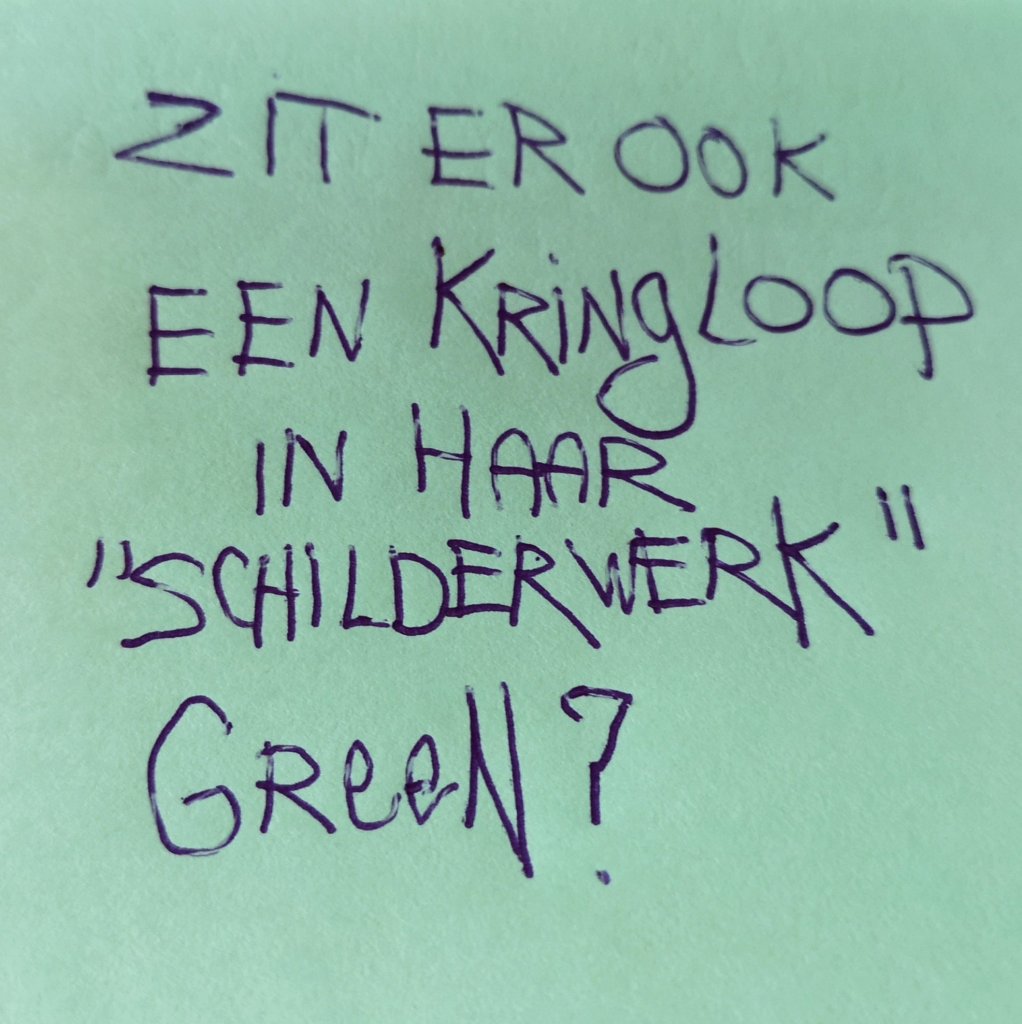 ZIT ER OOK
EEN KRINGLOOP
IN HAAR
"SCHILDERWERK"
GReeN?